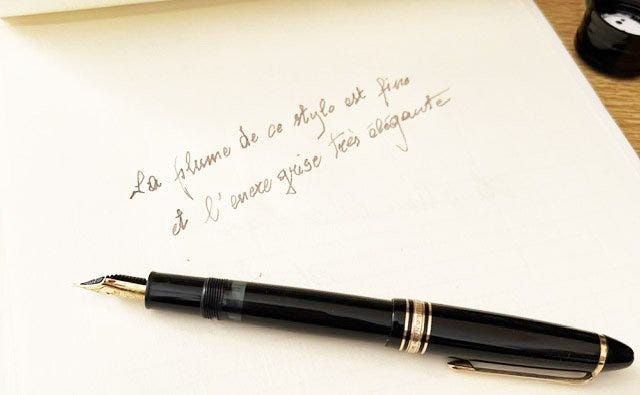 La plume de ce stylo est fine
et l'encre grise très élégante